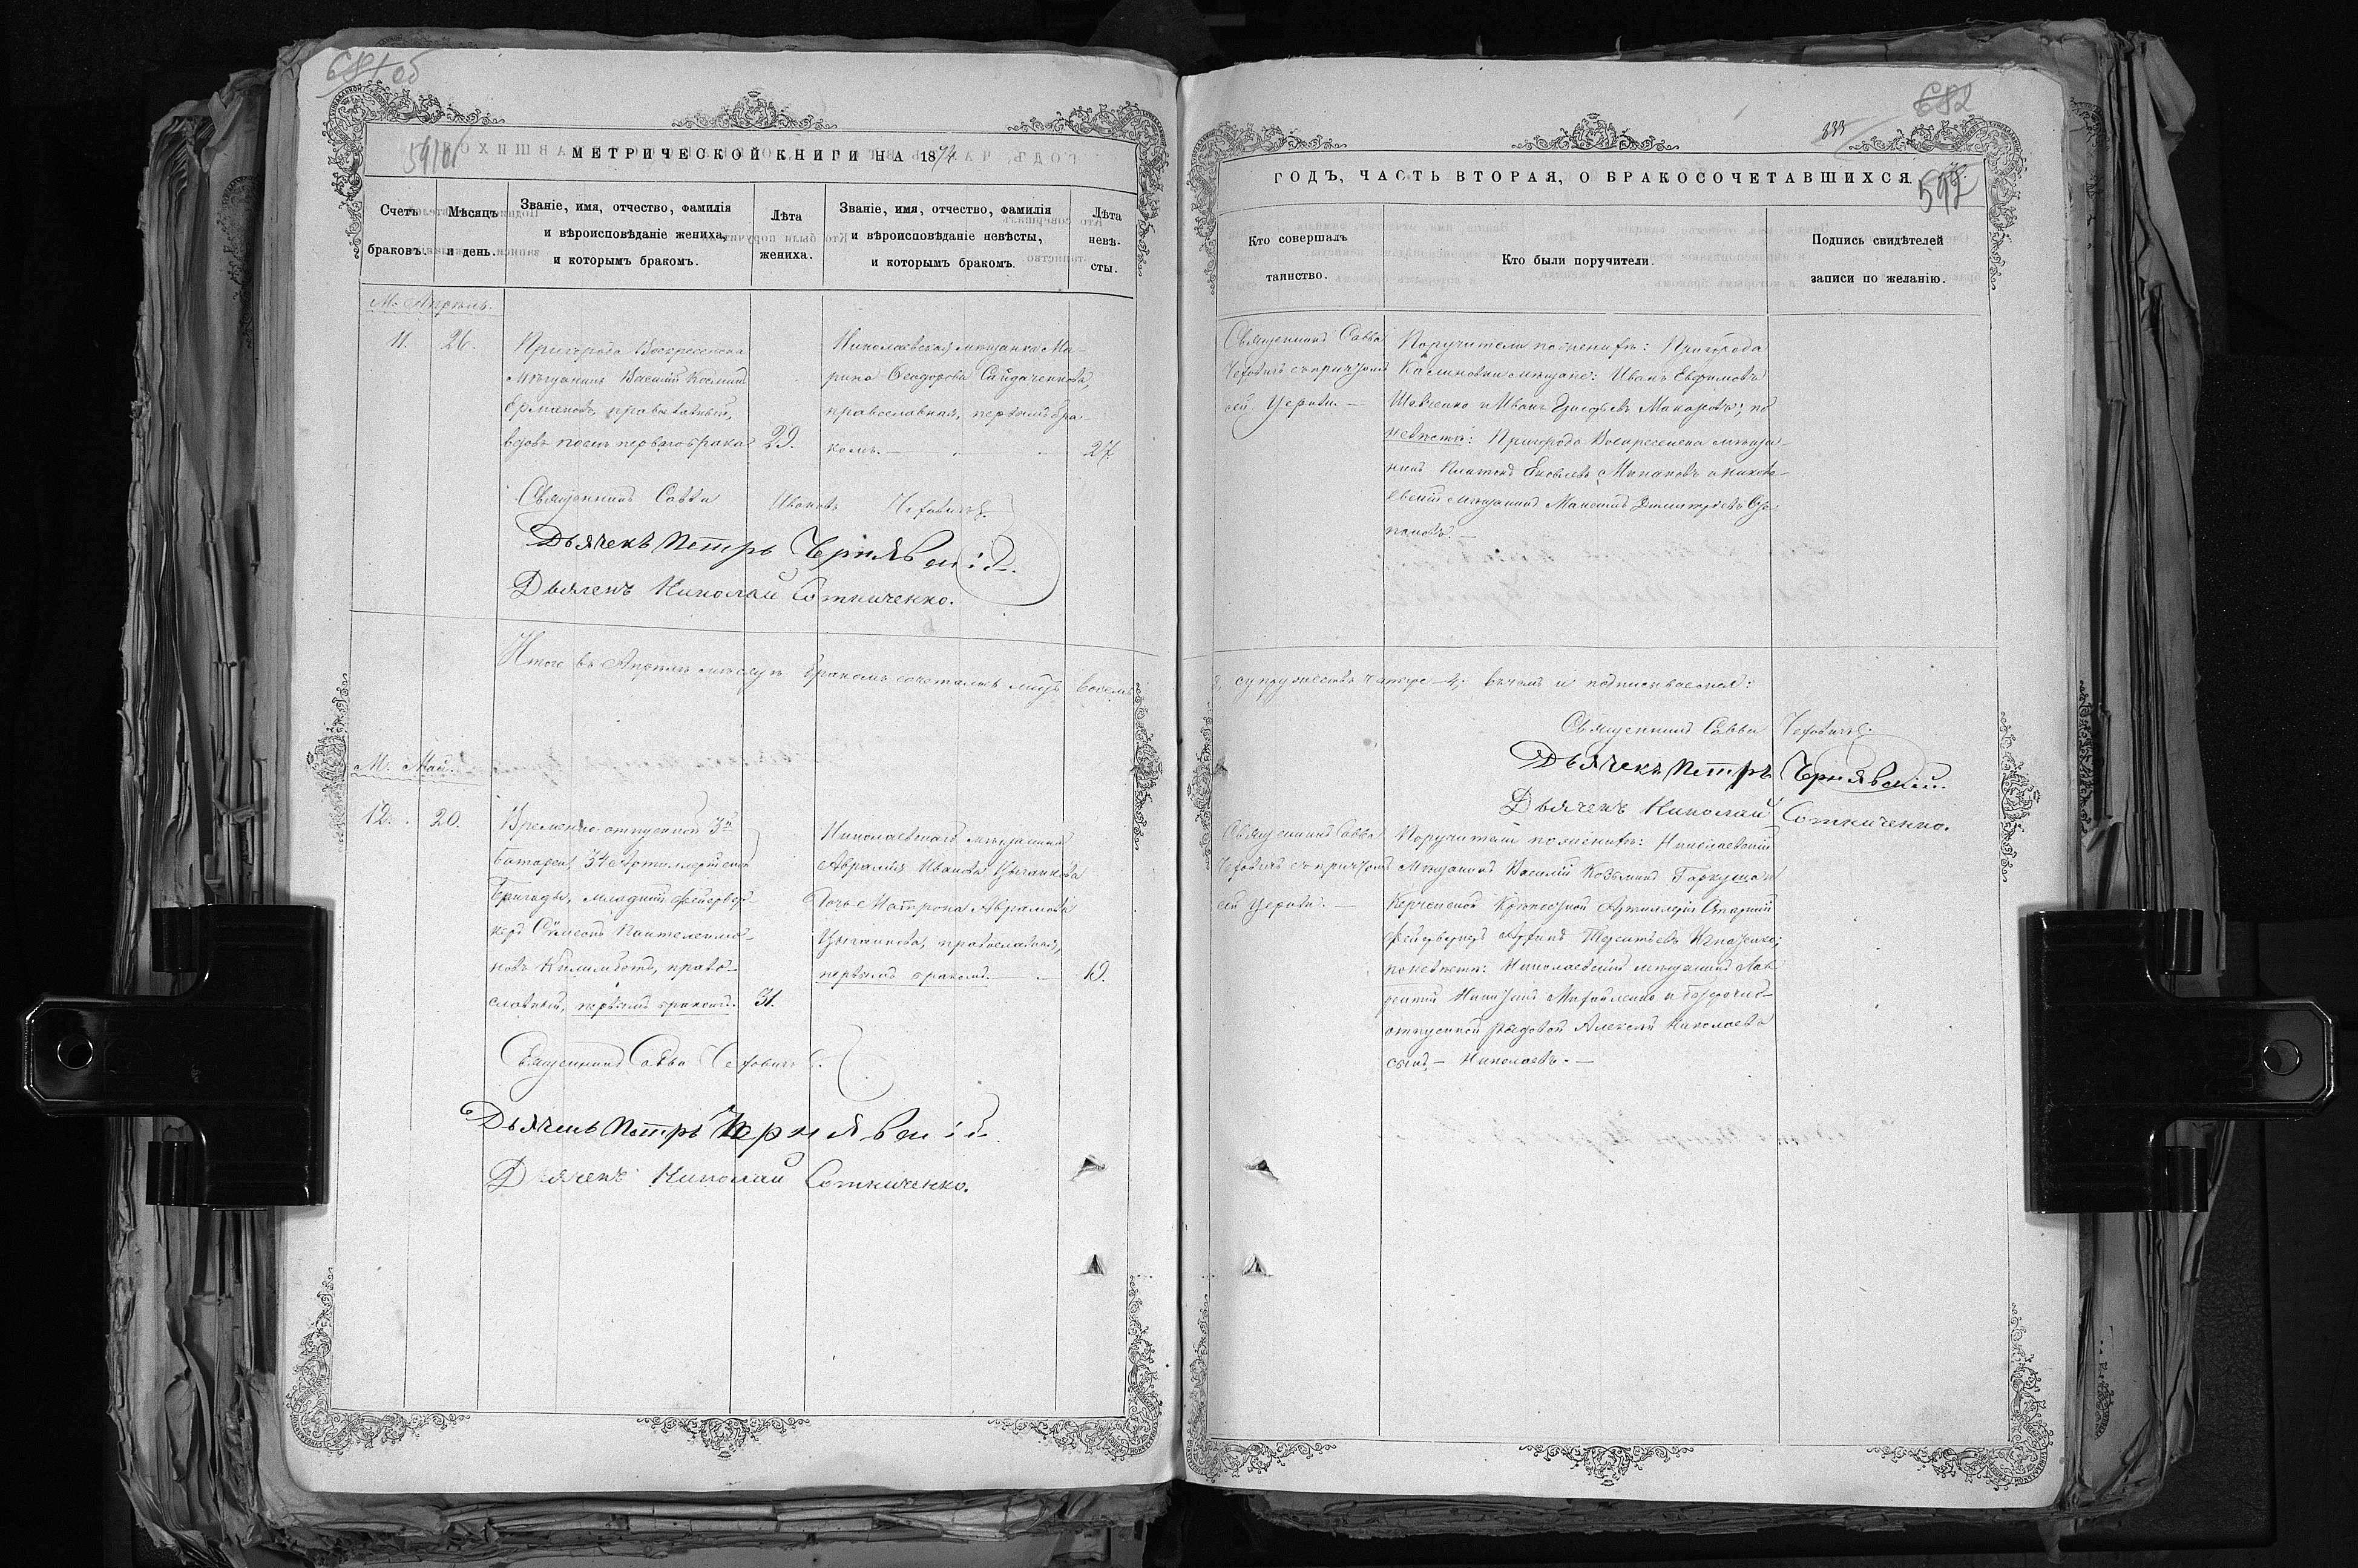 681 об
591 об
МЕТРИЧЕСКОЙ КНИГИ НА 1874
Счетъ браковъ.
Мѣсяцъ и день.
Званіе, имя, отчество, фамилія
и вѣроисповѣданіе жениха,
и которымъ бракомъ.
Лѣта
жениха.
Званіе, имя, отчество, фамилія
и вѣроисповѣданіе невѣсты,
и которымъ бракомъ.
Лѣта
невѣ-
сты.
М. Апрѣль.
11.
26.
Пригорода Воскресенска
мѣщанинъ Василій Косминъ
Ермаковъ, православный,
вдовъ послѣ перваго брака
29.
Николаевская мѣщанка Ма-
рина Ѳеодорова
православная, первымъ бра-
комъ.
27.
Священникъ Савва Ивановъ
Дьячекъ Петръ Чернявскій.
Дьячекъ Николай Сотниченко.
Итого въ Апрѣлѣ мѣсяцѣ бракомъ сочеталось лицъ восемь
М. Май.
12.
20.
Временно-отпускной 3й
батареи, 34 Артиллерійской
бригады, младшій фейервер-
керъ Сѵмеонъ Пантелеимо-
новъ православ-
славный, первымъ бракомъ.
31.
Николаевскаго мѣщанина
Аврамія Иванова Цыганкова
дочь Матрона Аврамова
Цыганкова, православная,
первымъ бракомъ.
19.
Священникъ Савва
Дьячекъ Петръ Чернявскій.
Дьячекъ Николай Сотниченко.
682
333
592
ГОДЪ, ЧАСТЬ ВТОРАЯ, О БРАКОСОЧЕТАВШИХСЯ.
Кто совершалъ
таинство.
Кто были поручители.
Подпись свидѣтелей
записи по желанію.
Священникъ Савва
съ причтомъ
сей церкви.
Поручители по женихѣ: Пригорода
Калиновки мѣщане: Иванъ Евфимовъ
Шевченко и Иванъ Григорьевъ Макаровъ; по
невѣстѣ: Пригорода Воскресенска мѣща-
нинъ Платонъ Яковлевъ и Никола-
евскій мѣщанинъ Димитріевъ Сте-
пановъ.
супружествъ четыре—4; въ чемъ и подписываемся:
Священникъ Савва
Дьячекъ Петръ Чернявскій.
Дьячекъ Николай Сотниченко.
Священникъ Савва
съ причтомъ
сей церкви.
Поручители по женихѣ: Николаевскій
мѣщанинъ Василій Козьминъ Гаркуша и
Керченской крѣпостной Артиллеріи старшій
фейерверкеръ Терентьевъ Игнатенко;
по невѣстѣ: Николаевскій мѣщанинъ Лав-
рентій Никитинъ Михайленко и безсрочно-
отпускной рядовой Алексѣй Николаевъ
сынъ — Николаевъ.